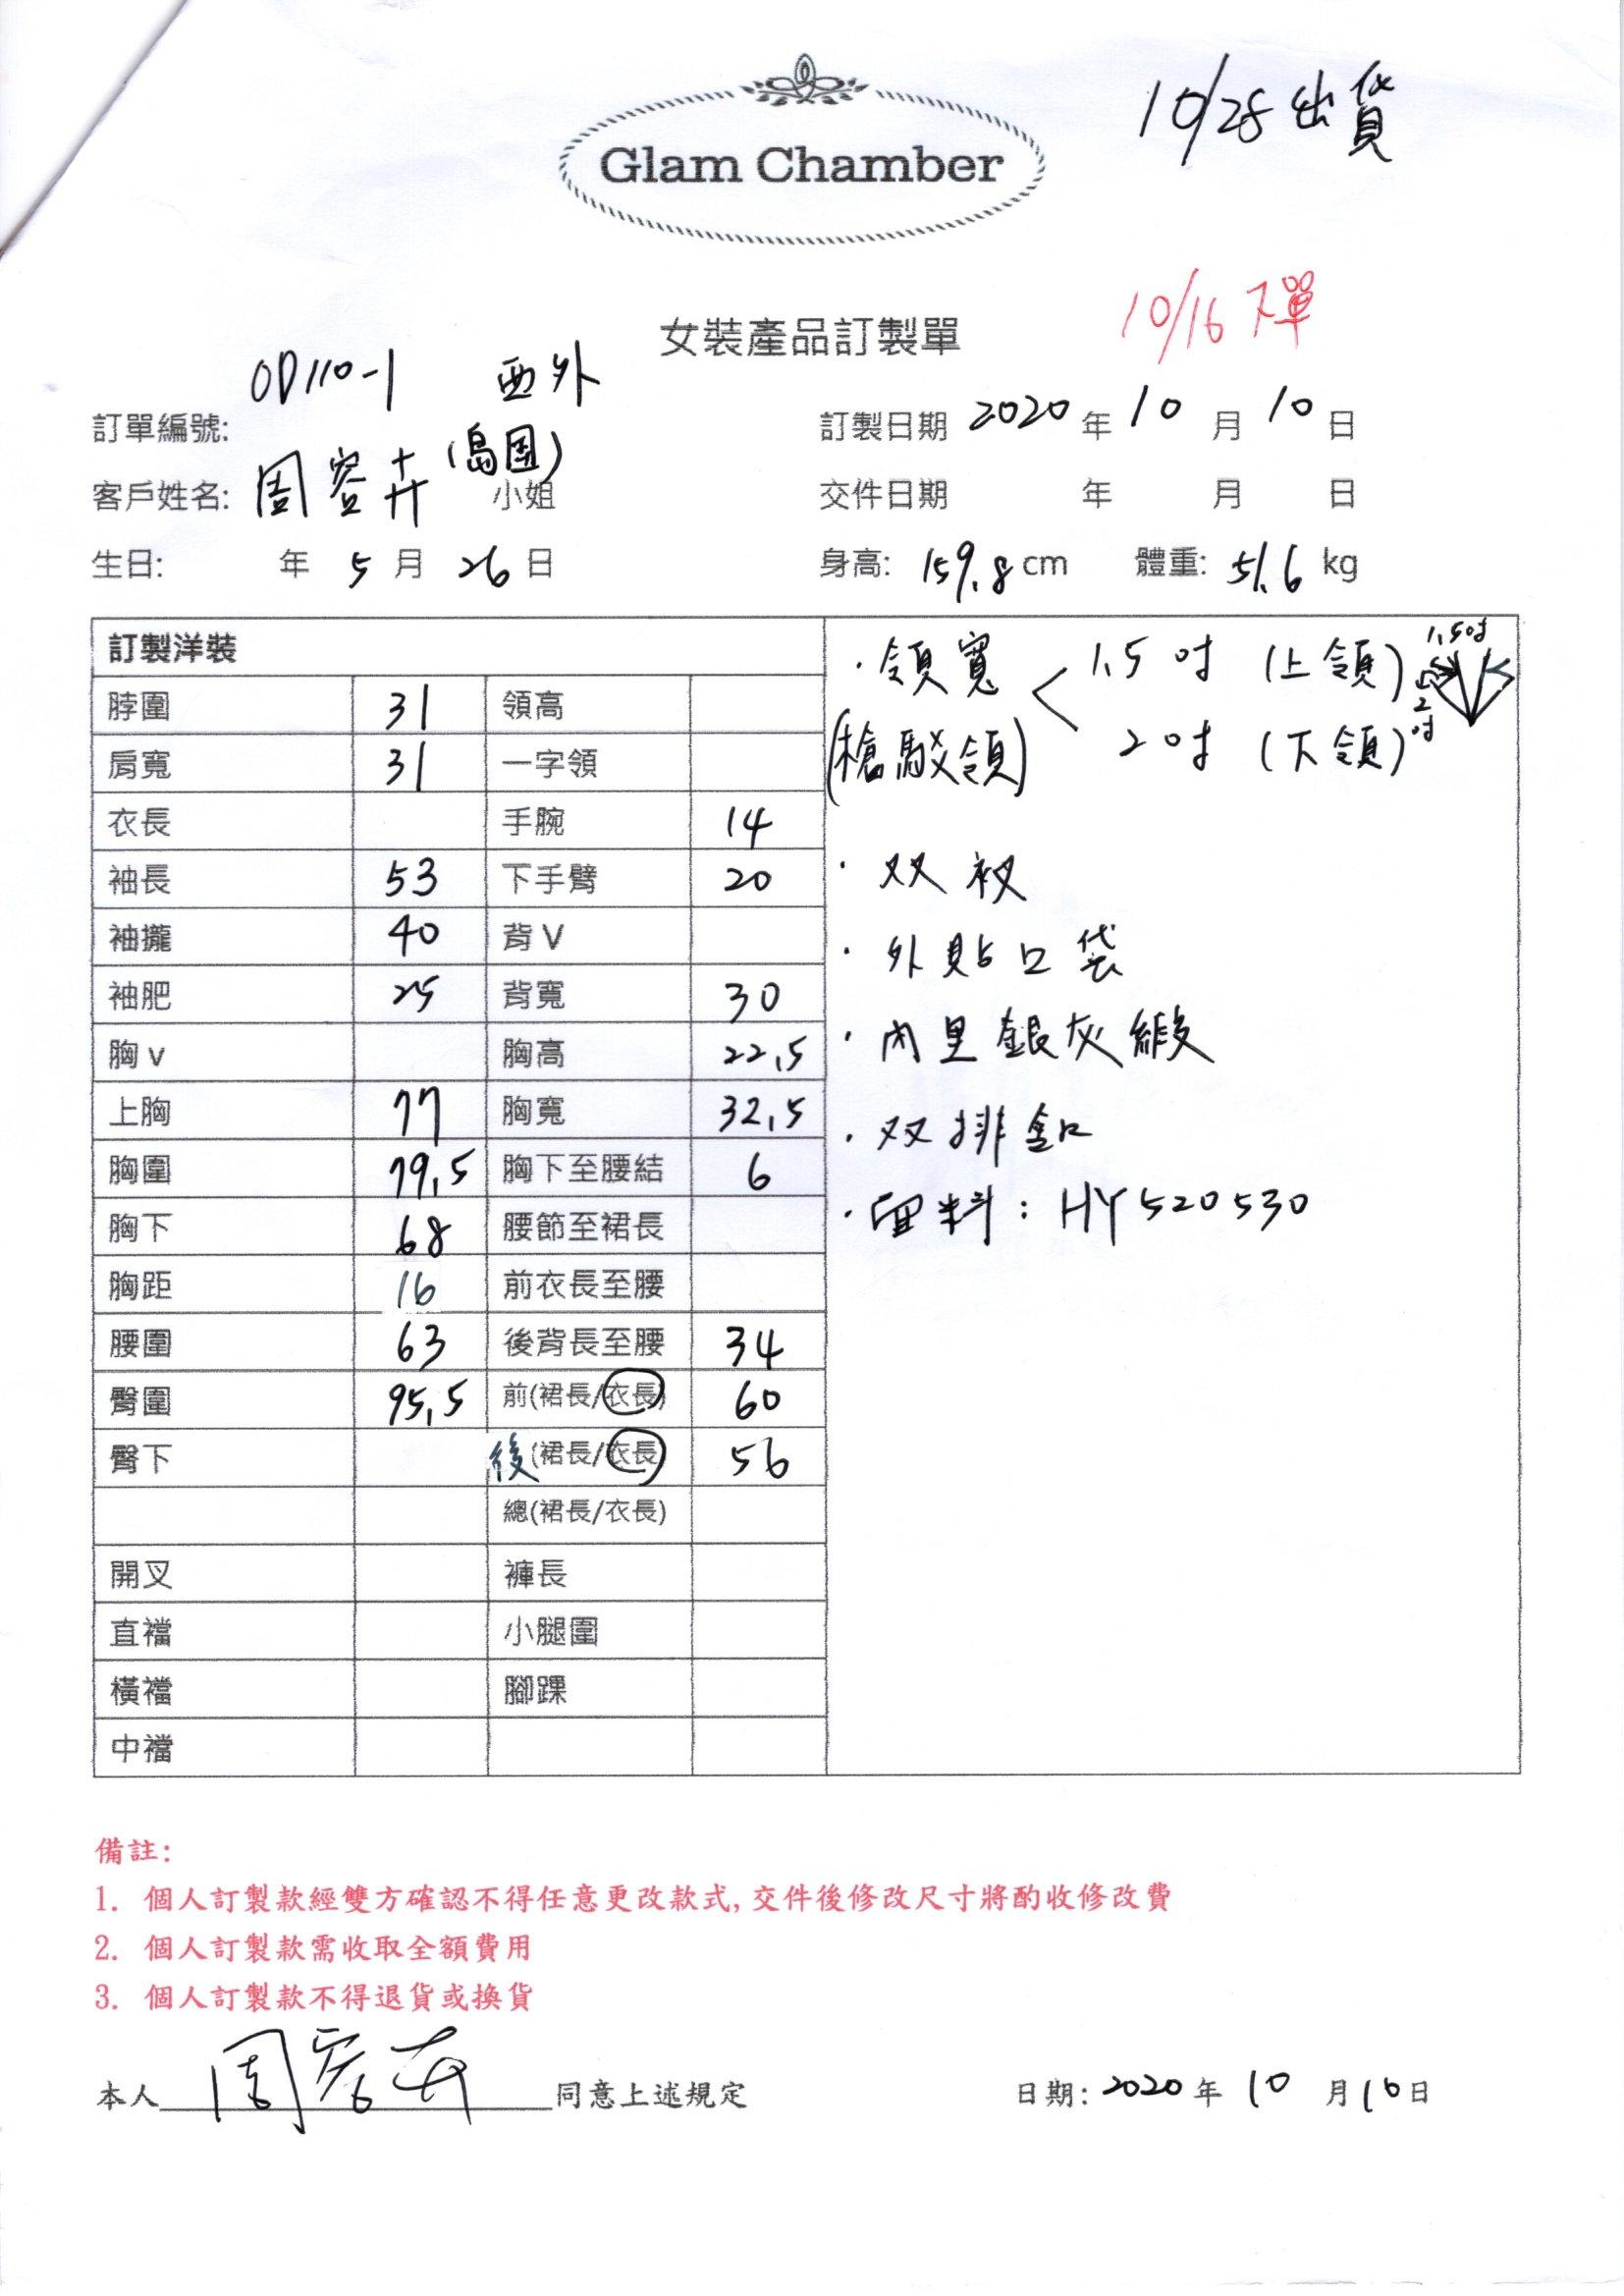 10/28出貨
Glam Chamber
10/16 下單
女裝產品訂製單
OD110-1 西外
訂單編號:
訂製日期 2020 年 10 月 10 日
(島国)
客戶姓名: 周容卉 小姐
交件日期 年 月 日
生日: 年 5 月 26 日
身高: 159.8 cm 體重: 51.6 kg
訂製洋裝
脖圍 31 領高
肩寬 31 一字領
衣長 手腕 14
袖長 53 下手臂 20
袖攏 40 背 V
袖肥 25 背寬 30
胸 v 胸高 22.5
上胸 77 胸寬 32.5
胸圍 79.5 胸下至腰結 6
胸下 68 腰節至裙長
胸距 16 前衣長至腰
腰圍 63 後背長至腰 34
臀圍 95.5 前(裙長/衣長) 60
臀下 後(裙長/衣長) 56
總(裙長/衣長)
開叉 褲長
直襠 小腿圍
橫襠 腳踝
中襠
·領寬 1.5吋 (上領)
(槍駁領) 2吋 (下領)
1.5吋
2吋
·双衩
·外貼口袋
·內里銀灰緞
·双排釦
·面料: HY520530
備註:
1. 個人訂製款經雙方確認不得任意更改款式,交件後修改尺寸將酌收修改費
2. 個人訂製款需收取全額費用
3. 個人訂製款不得退貨或換貨
本人 周容卉 同意上述規定
日期: 2020 年 10 月 10 日